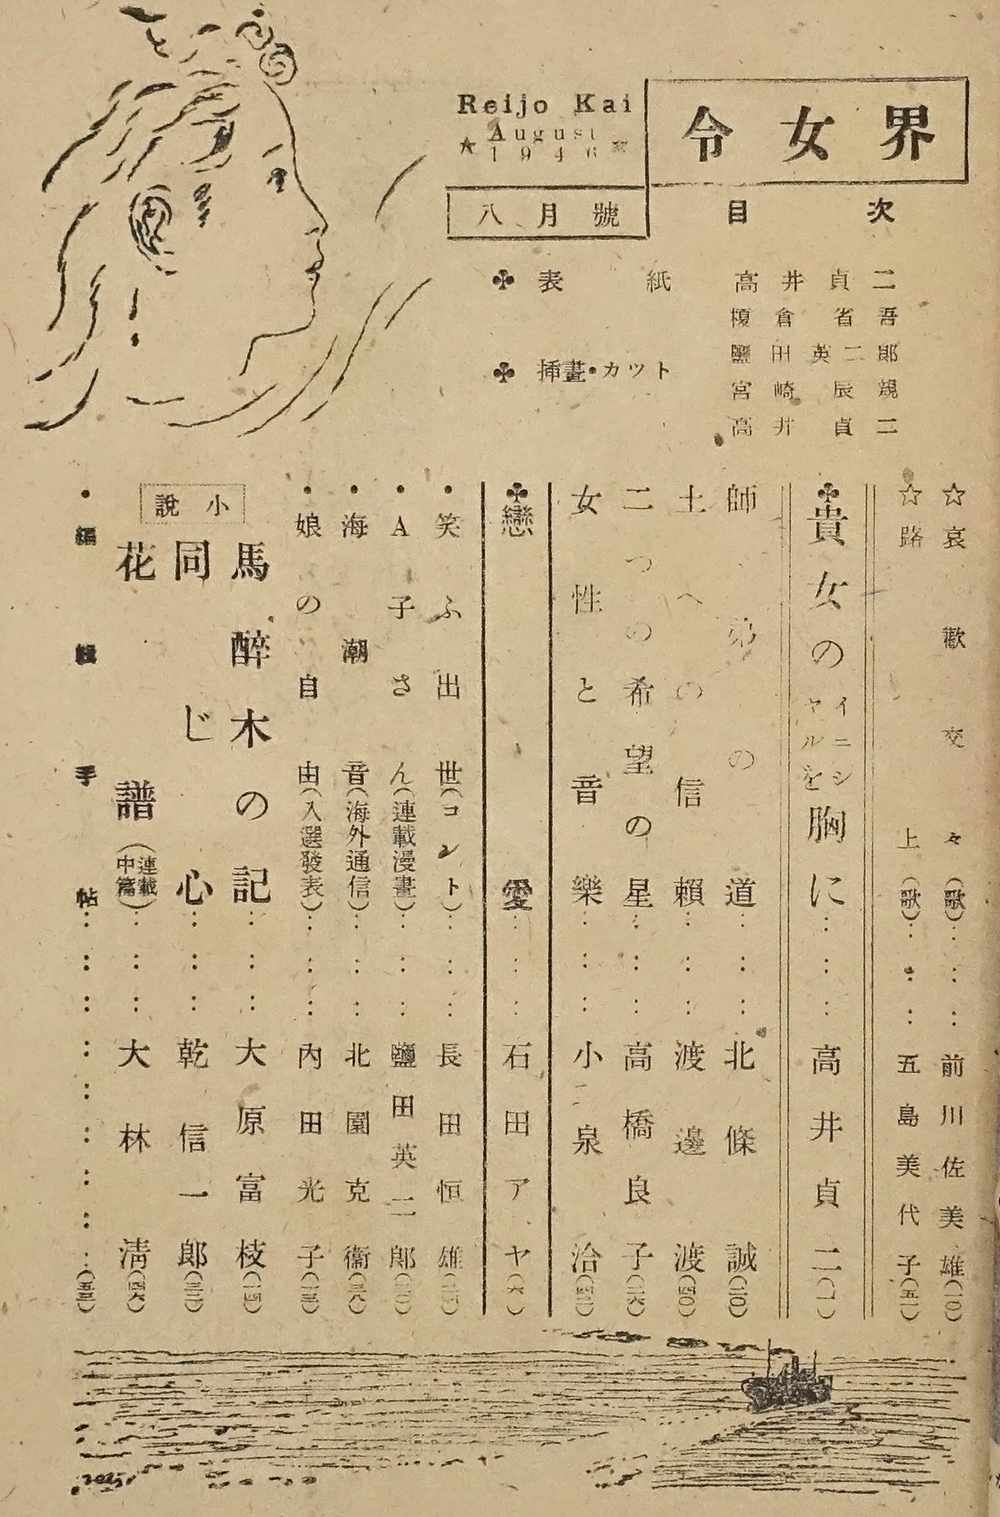 令女界
Reijo Kai
August
★ 1946 ★
八月號
目次
♣表紙
高井貞二
♣挿畫・カツト
榎倉省吾
鹽田英二郎
宮崎辰親
高井貞二
☆哀歡交々(歌)……前川佐美雄(一〇)
☆路上(歌)……五島美代子(五一)
♣貴女のイニシヤルを胸に……高井貞二(一)
師弟の道……北條誠(二〇)
土への信頼……渡邊渡(四〇)
二つの希望の星……高橋良子(二六)
女性と音樂……小泉洽(四二)
♣戀愛……石田アヤ(六)
・笑ふ出世(コント)……長田恒雄
・A子さん(連載漫畫)……鹽田英二郎
・海潮音(海外通信)……北園克衞(三八)
・娘の自由(入選發表)……内田光子
小說
馬醉木の記……大原富枝(一四)
同じ心……乾信一郎(三二)
花譜(連載中篇)……大林清(四六)
・編輯手帖……(五三)